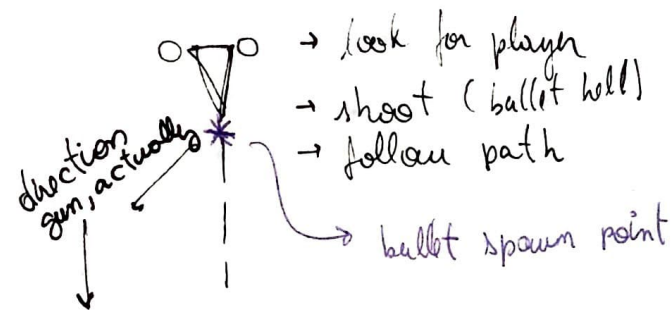 → look for player
→ shoot (bullet hell)
→ follow path
direction
gun, actually
bullet spawn point